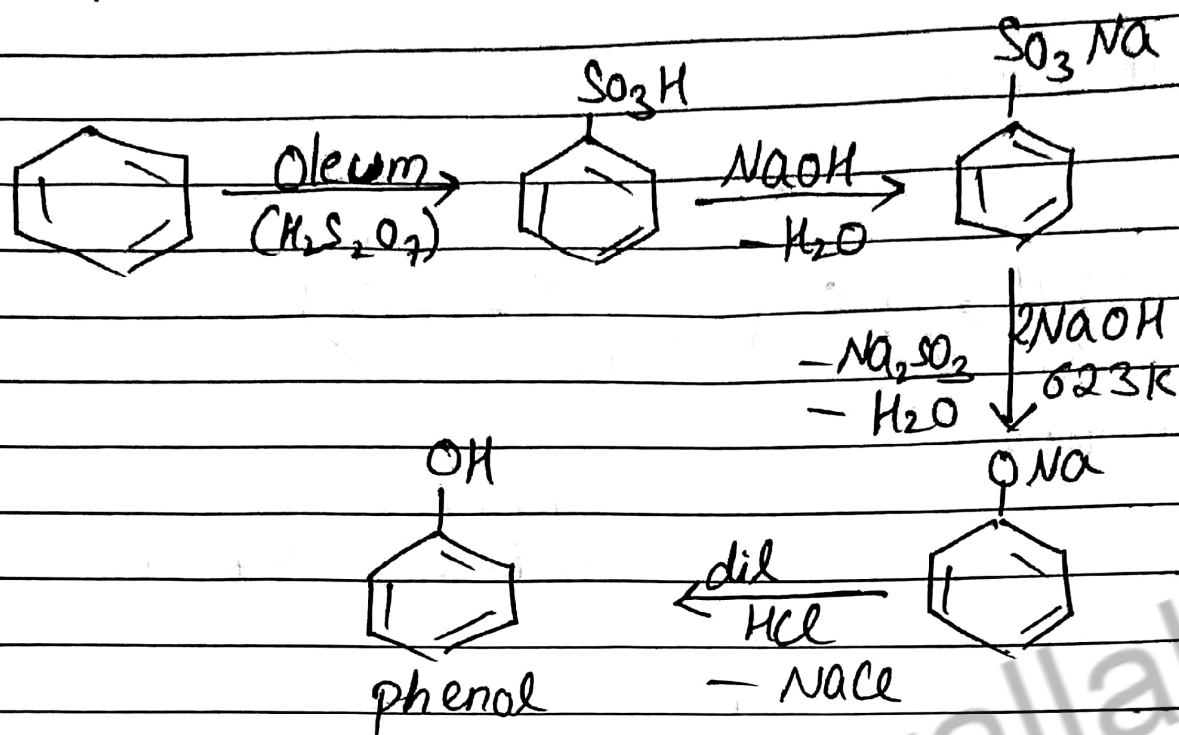 SO3H
SO3 Na
Oleum
(H2S2O7)
NaOH
-H2O
2NaOH
623K
-Na2SO3
- H2O
ONa
dil
HCl
- NaCl
OH
phenol